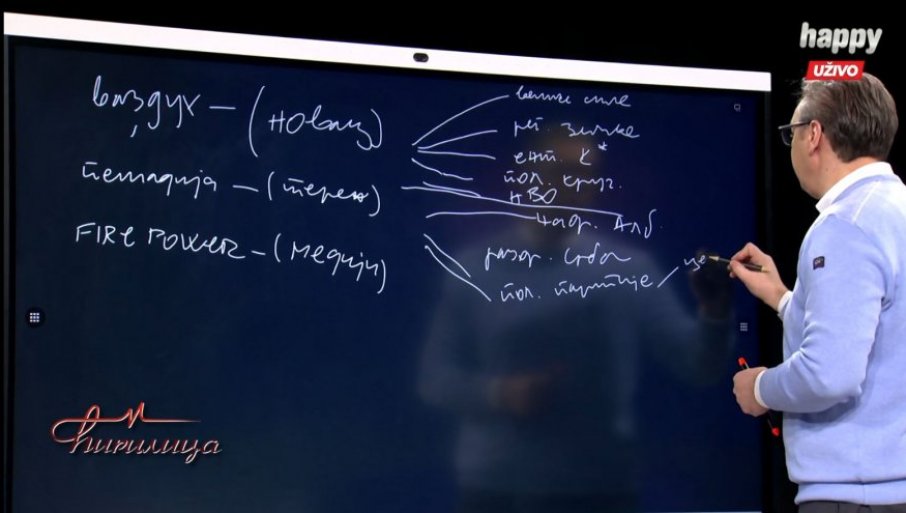 happy
UŽIVO
ваздух – (новац)
велике силе
рег. земље
ент. К*
пол. круг.
пешадија – (терен)
НВО
надр. Алб.
FIRE POWER – (медији)
разор. Срба
пол. партије
це
Ћирилица